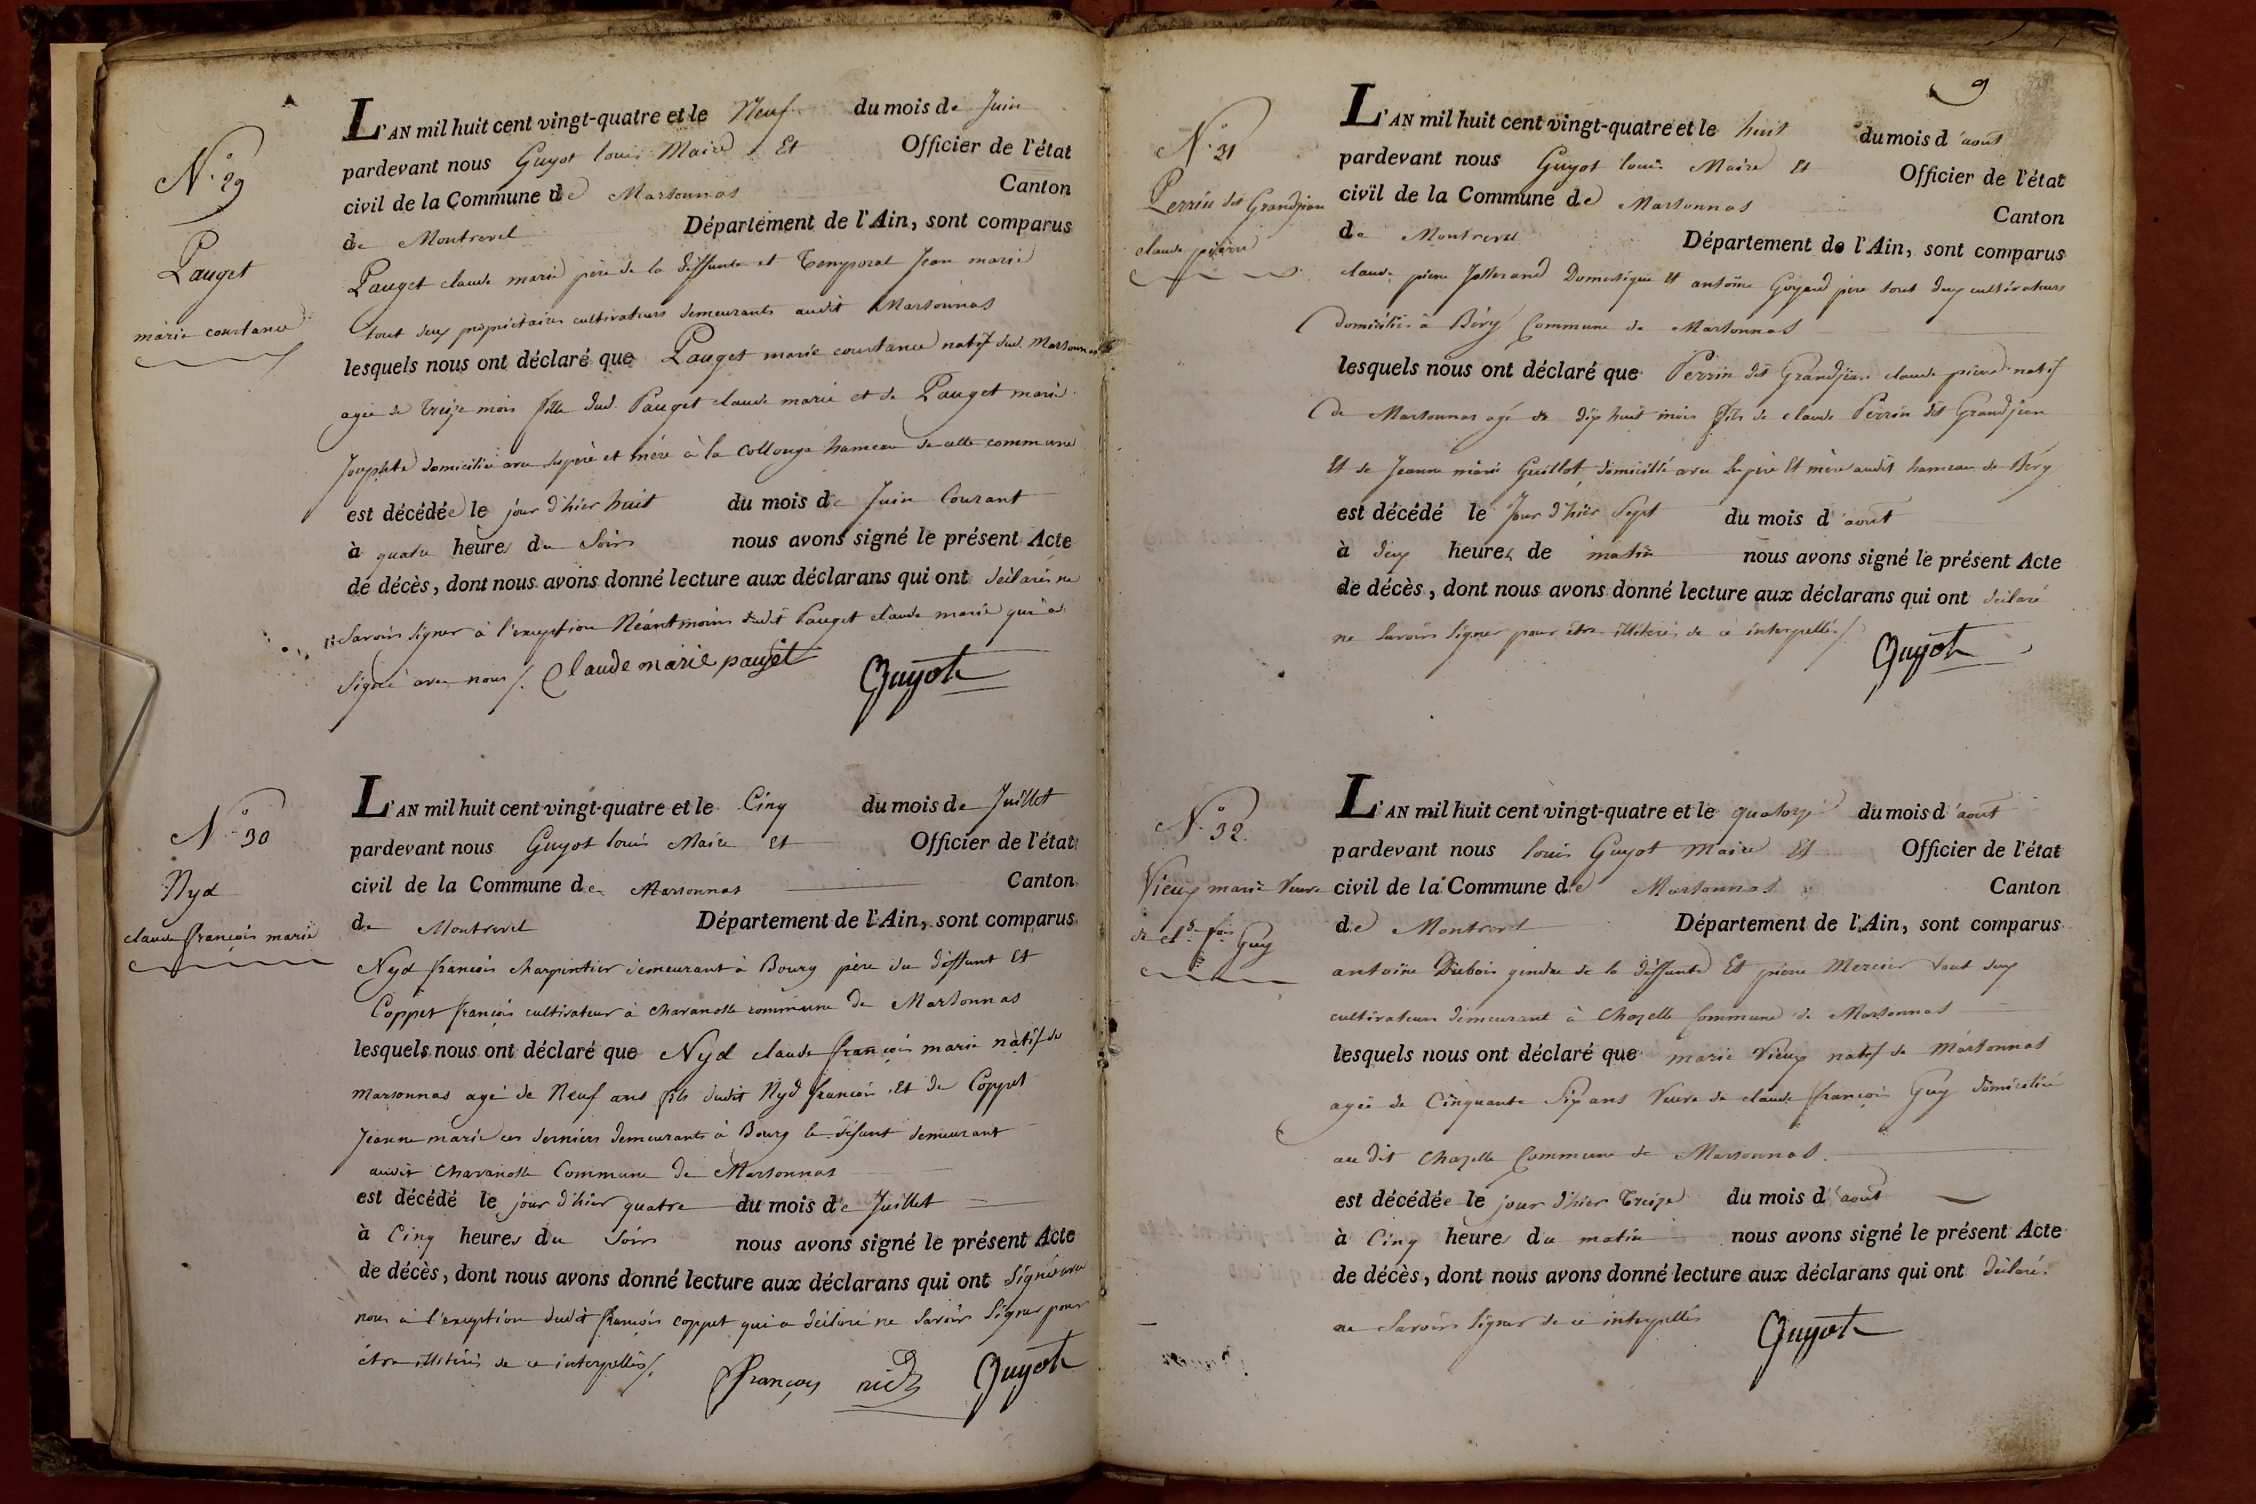 N.° 29
Pauget
marie constance
L'AN mil huit cent vingt-quatre et le Neuf du mois de Juin
pardevant nous Guyot louis Maire Et Officier de l'état
civil de la Commune de Marsonnas Canton
de Montrevel Département de l'Ain, sont comparus
Pauget claude marie père de la deffunte et Temporal Jean marie
tout deux propriétaires cultivateurs demeurants audit Marsonnas
lesquels nous ont déclaré que Pauget marie constance natif dud. Marsonnas
agée de treize mois fille dud. Pauget claude marie et de Pauget marie
Josephte domiciliée avec ses père et mère à la Collonge hameau de cette commune
est décédée le jour d'hier huit du mois de Juin Courant
à quatre heures du Soir nous avons signé le présent Acte
de décès, dont nous avons donné lecture aux déclarans qui ont déclarés ne
Savoir Signer à l'exception Néantmoins dudit Pauget claude marie qui a
Signé avec nous /. Claude marie pauget Guyot
N.° 30
Nyd
claude françois marie
L'AN mil huit cent vingt-quatre et le Cinq du mois de Juillet
pardevant nous Guyot louis Maire Et Officier de l'état
civil de la Commune de Marsonnas Canton
de Montrevel Département de l'Ain, sont comparus
Nyd françois charpentier demeurant à Bourg père du déffunt Et
Coppet françois cultivateur à charanolle commune de Marsonnas
lesquels nous ont déclaré que Nyd claude françois marie natif de
Marsonnas agé de Neuf ans fils dudit Nyd françois Et de Coppet
Jeanne marie ces derniers demeurants à Bourg le défunt demeurant
audit Charanolle Commune de Marsonnas
est décédé le jour d'hier quatre du mois de Juillet
à Cinq heures du Soir nous avons signé le présent Acte
de décès, dont nous avons donné lecture aux déclarans qui ont Signés avec
nous à l'exception dudit françois coppet qui a déclaré ne Savoir Signer pour
être illitérés de ce interpellés /. françois nid Guyot
9
N.° 31
Perrin dit Grandjean
claude pierre
L'AN mil huit cent vingt-quatre et le huit du mois d'aout
pardevant nous Guyot louis Maire Et Officier de l'état
civil de la Commune de Marsonnas Canton
de Montrevel Département de l'Ain, sont comparus
claude pierre Domestique Et antoine Goyard père tout deux cultivateurs
domiciliés à Béry Commune de Marsonnas
lesquels nous ont déclaré que Perrin dit Grandjean claude pierre natif
de Marsonnas agé de dix huit mois fils de claude Perrin dit Grandjean
Et de Jeanne marie Guillot, domicilié avec Ses père Et mère audit hameau de Béry
est décédé le Jour d'hier Sept du mois d'aout
à deux heures de matin nous avons signé le présent Acte
de décès, dont nous avons donné lecture aux déclarans qui ont déclaré
ne Savoir Signer pour être illitérés de ce interpellés /.
Guyot
N.° 32.
Vieux marie Veuve
de cl.de f.ois Guy
L'AN mil huit cent vingt-quatre et le quatorze du mois d'aout
pardevant nous louis Guyot maire Et Officier de l'état
civil de la Commune de Marsonnas Canton
de Montrevel Département de l'Ain, sont comparus
antoine Dubois gendre de la déffunte Et pierre Mercier tout deux
cultivateurs demeurant à Chazelle Commune de Marsonnas
lesquels nous ont déclaré que marie Vieux natif de Marsonnas
agée de Cinquante Six ans Veuve de claude françois Guy domiciliée
au dit Chazelle Commune de Marsonnas.
est décédée le jour d'hier Treize du mois d'aout
à Cinq heures du matin nous avons signé le présent Acte
de décès, dont nous avons donné lecture aux déclarans qui ont déclarés
ne Savoir Signer de ce interpellés
Guyot